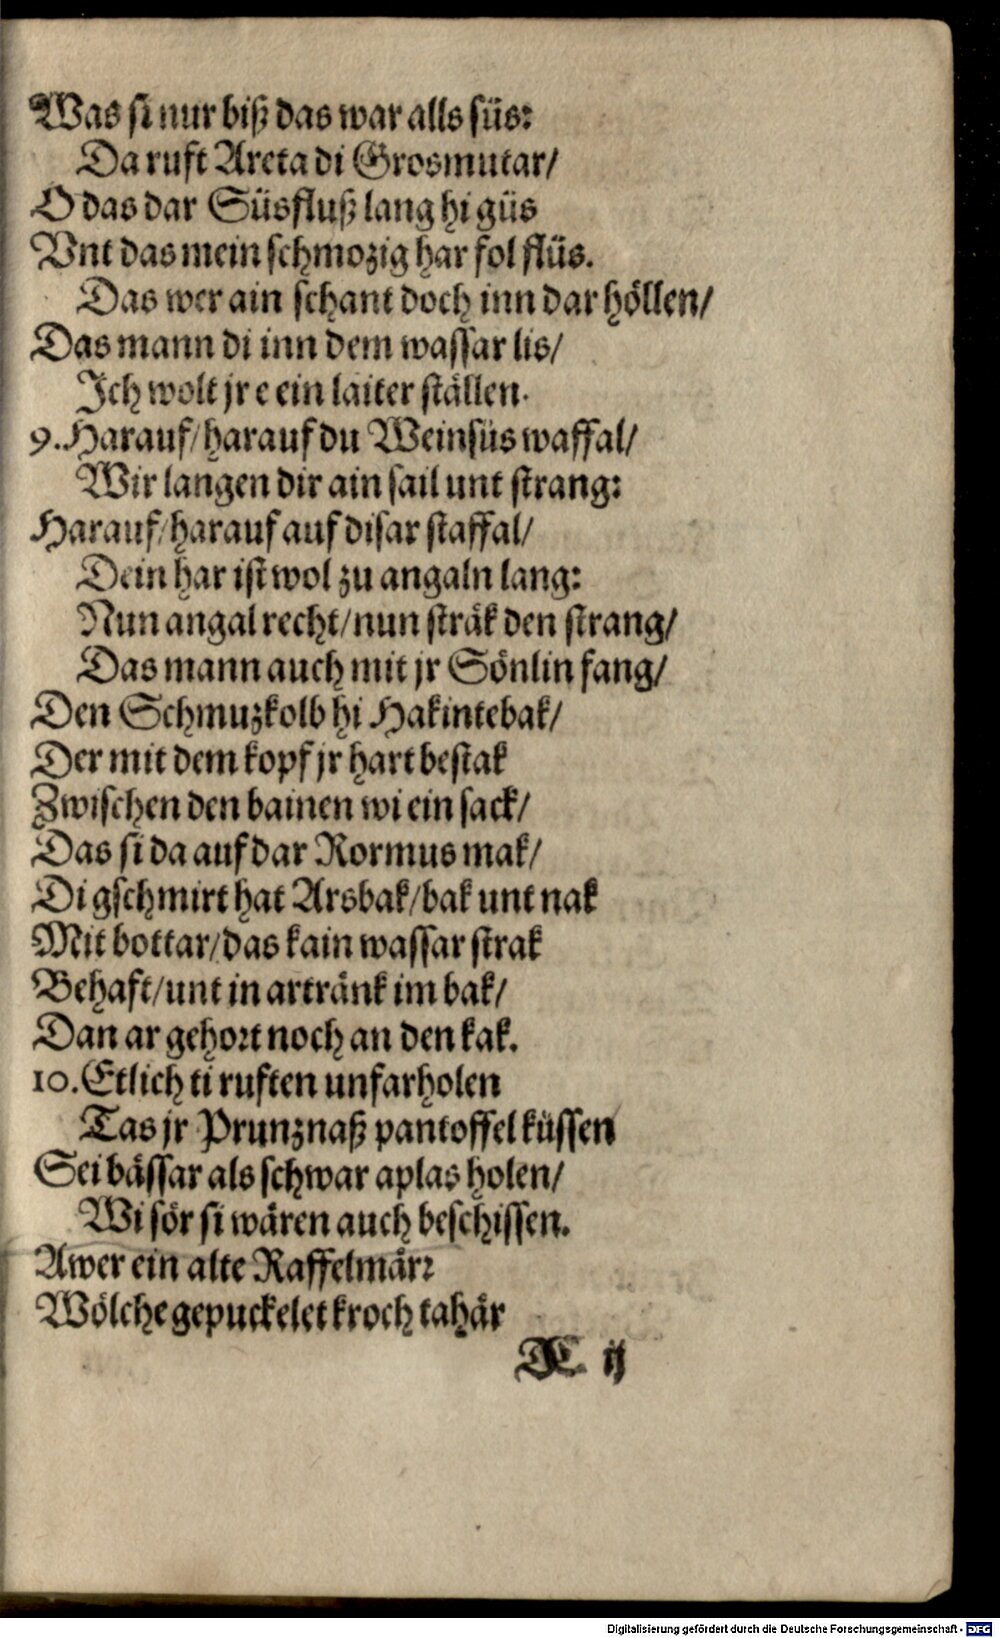 Was si nur biß das war alls süs:
Da ruft Areta di Grosmutar/
O das dar Süsfluß lang hi güs
Vnt das mein schmozig har fol flüs.
Das wer ain schant doch inn dar höllen/
Das mann di inn dem wassar lis/
Ich wolt jr e ein laiter ställen.
9. Harauf/harauf du Weinsüs waffal/
Wir langen dir ain sail unt strang:
Harauf/harauf auf disar staffal/
Dein har ist wol zu angaln lang:
Nun angal recht/nun sträk den strang/
Das mann auch mit jr Sönlin fang/
Den Schmuzkolb hi Hakintebak/
Der mit dem kopf jr hart bestak
Zwischen den bainen wi ein sack/
Das si da auf dar Rormus mak/
Di gschmirt hat Arsbak/bak unt nak
Mit bottar/das kain wassar strak
Behaft/unt in artränk im bak/
Dan ar gehort noch an den kak.
10. Etlich ti ruften unfarholen
Tas jr Prunznaß pantoffel küssen
Sei bässar als schwar aplas holen/
Wi sör si wären auch beschissen.
Awer ein alte Raffelmärr
Wölche gepuckelet kroch tahär
ij
Digitalisierung gefördert durch die Deutsche Forschungsgemeinschaft - DFG